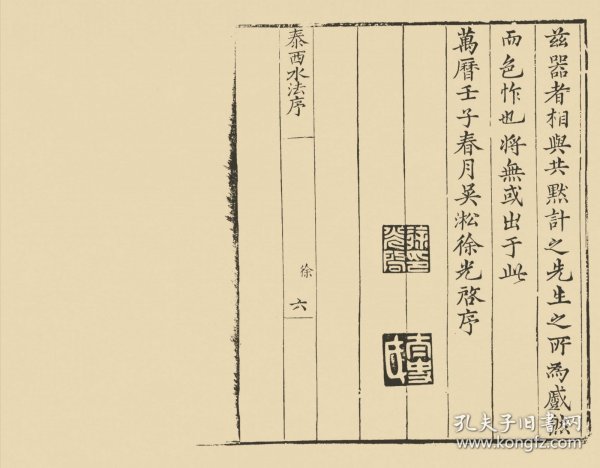 兹器者相與共黙計之先生之所為蹙然
而色怍也将無或出于此
萬曆壬子春月吳淞徐光啓序
泰西水法序
徐
六
孔夫子旧书网
www.kongfz.com